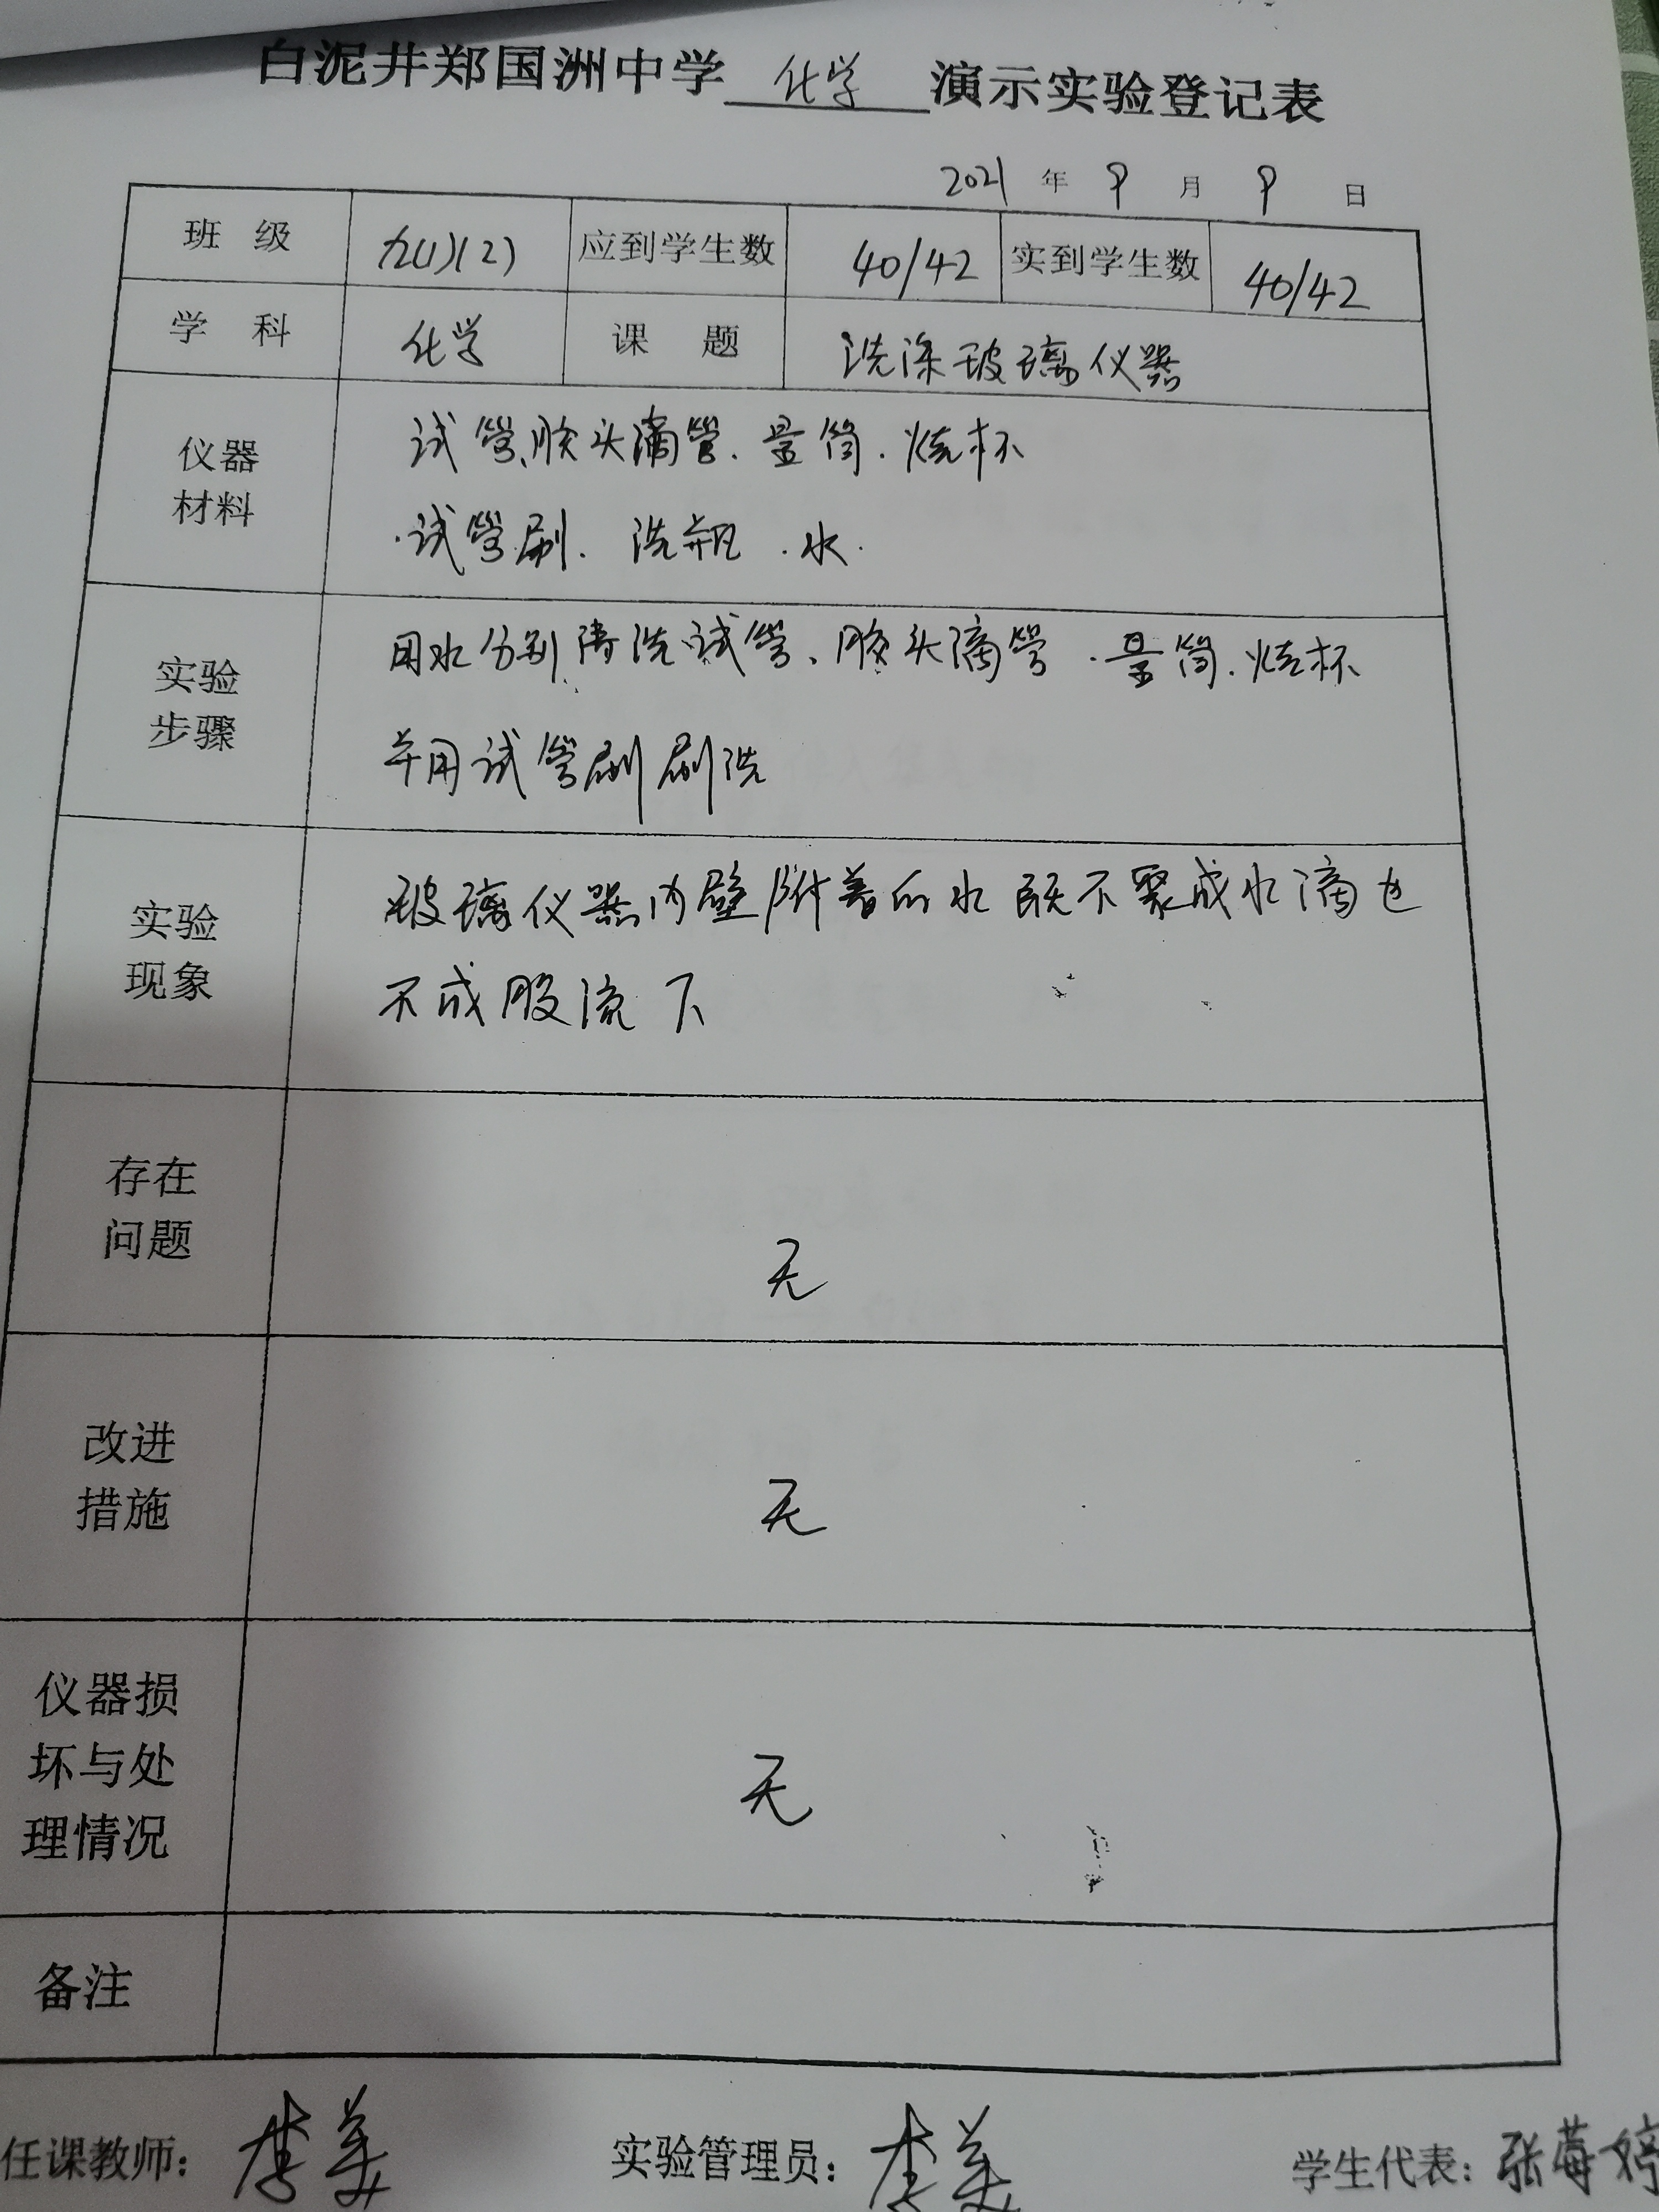 白泥井郑国洲中学 化学 演示实验登记表
2021 年 9 月 9 日
班 级 九(1)(2) 应到学生数 40/42 实到学生数 40/42
学 科 化学 课 题 洗涤玻璃仪器
仪器
材料
试管、胶头滴管.量筒.烧杯
.试管刷. 洗瓶 .水.
实验
步骤
用水分别清洗试管、胶头滴管 .量筒.烧杯
并用试管刷刷洗
实验
现象
玻璃仪器内壁附着的水既不聚成水滴也
不成股流下
存在
问题
无
改进
措施
无
仪器损
坏与处
理情况
无
备注
任课教师: 李美 实验管理员: 李美 学生代表: 张莓婷